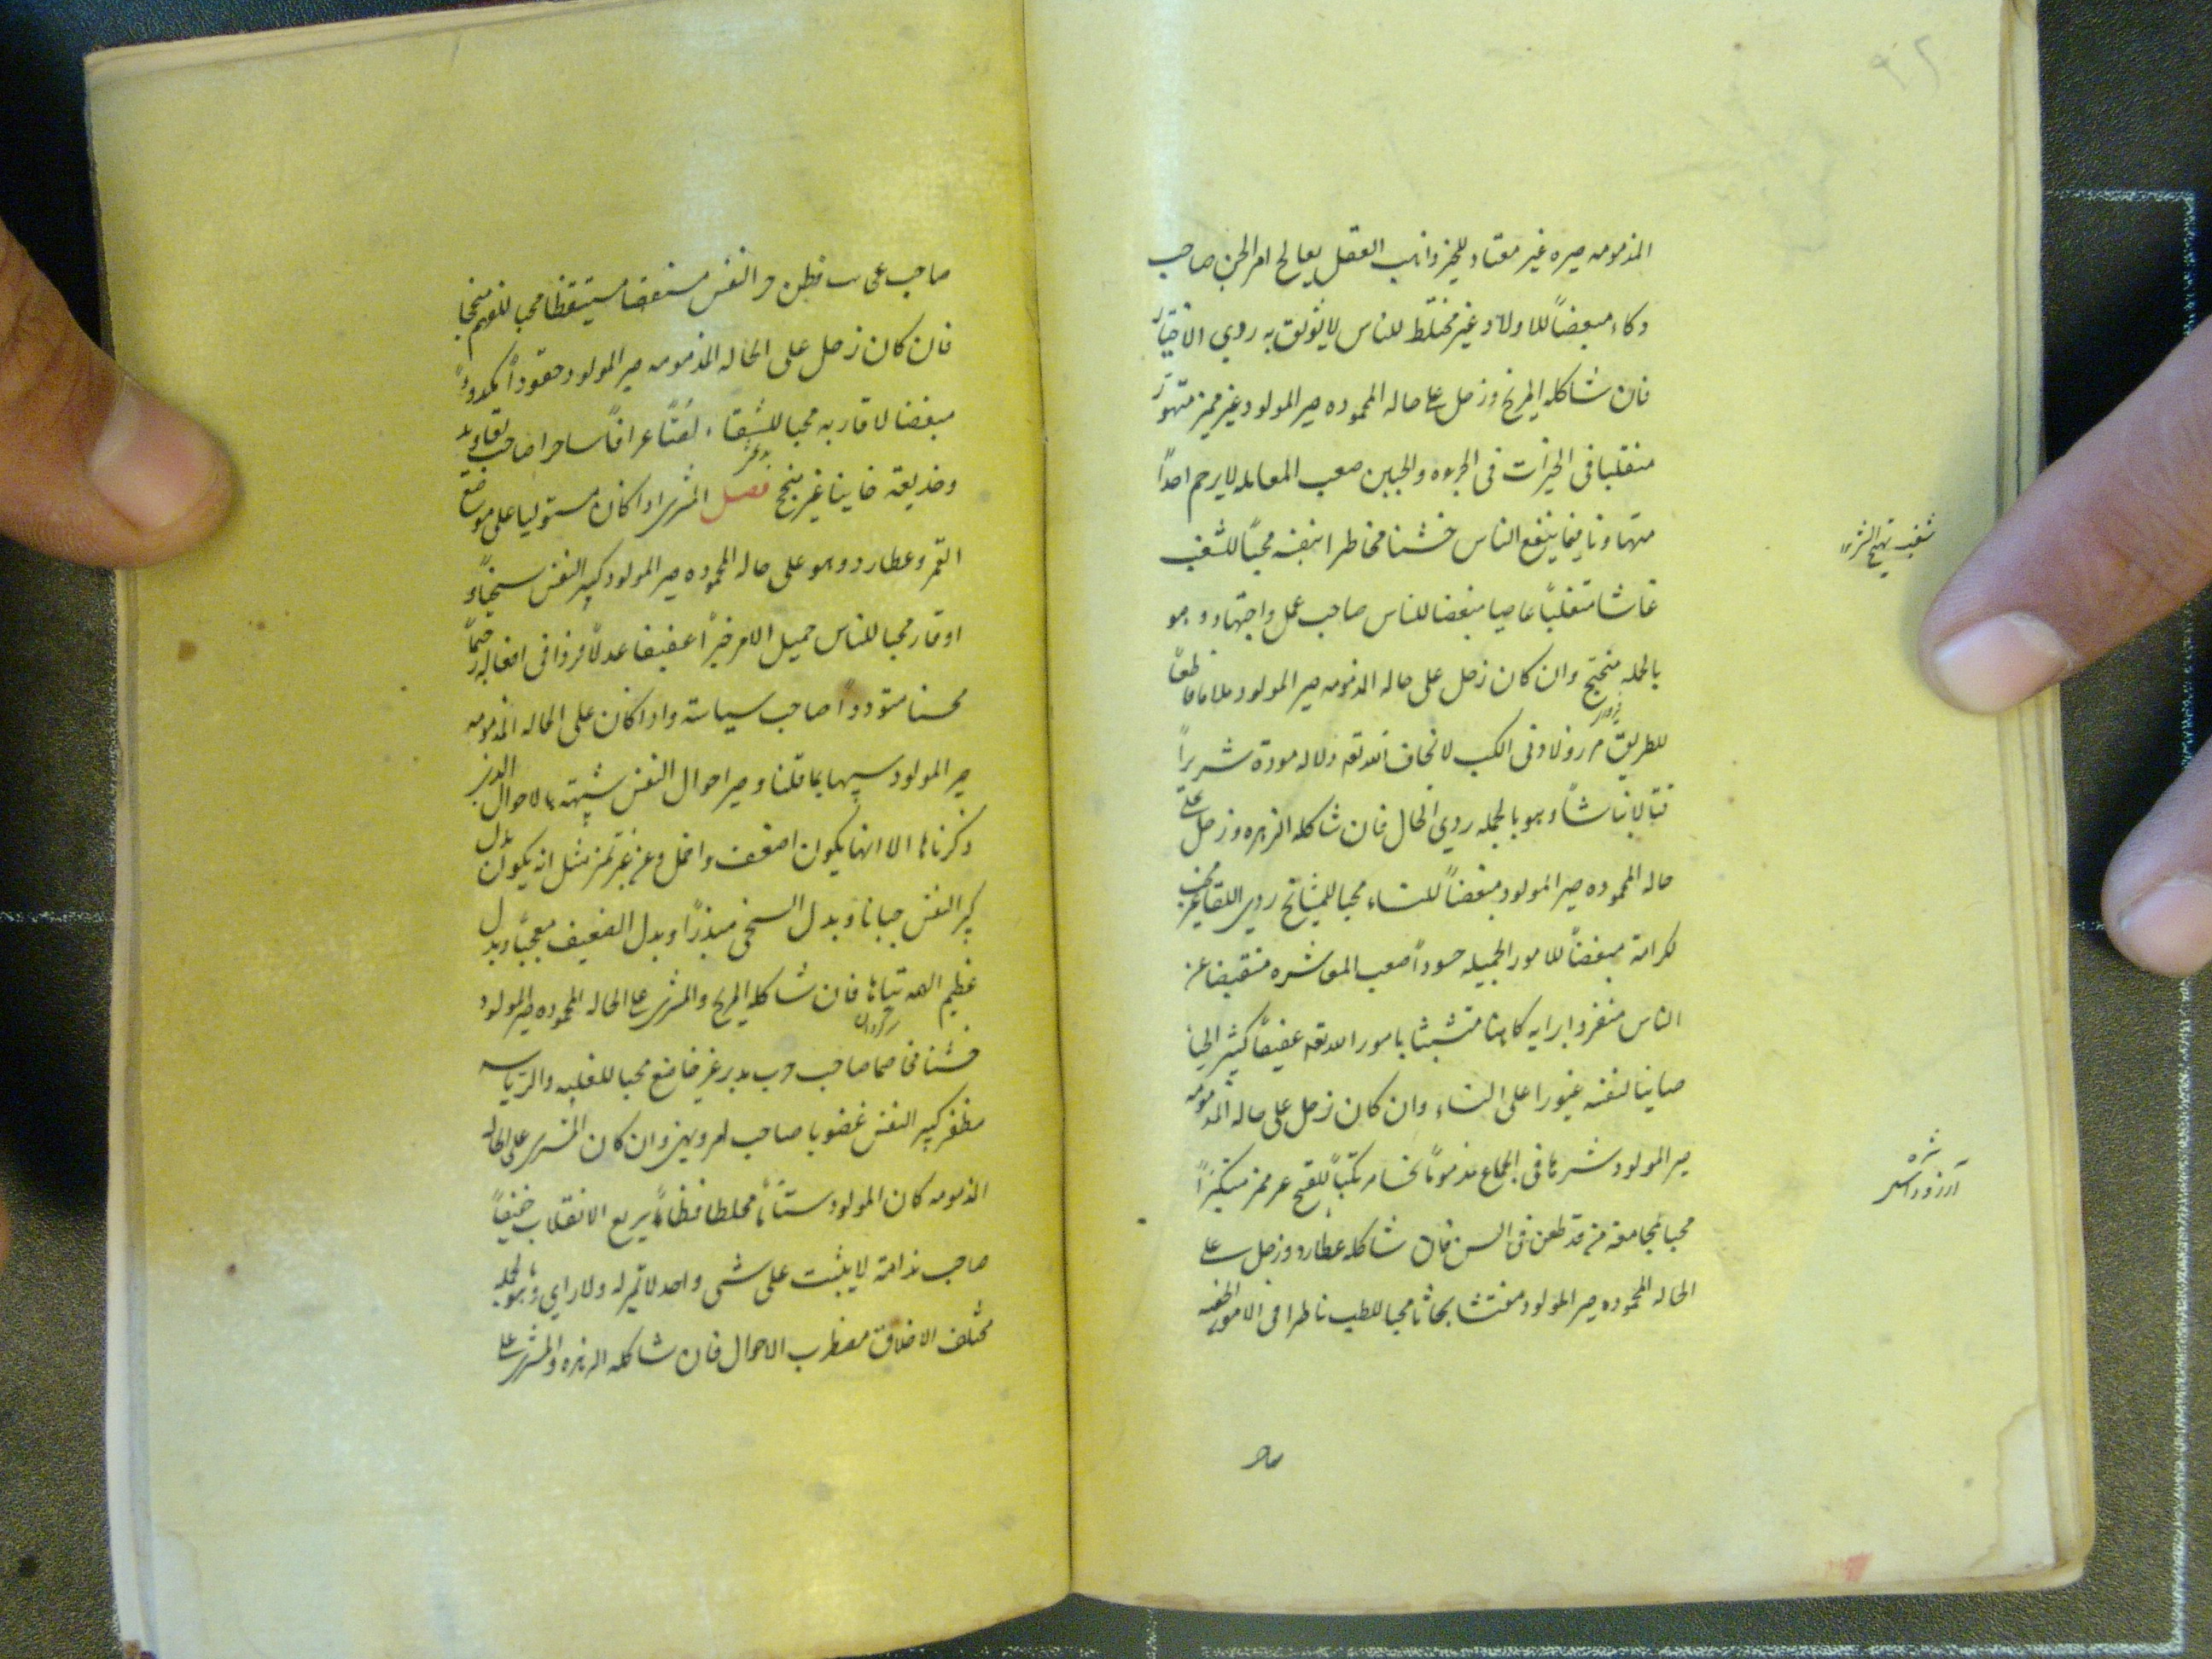 المذمومه صيره غير معتاد للخير ذاهب العقل يعالج امر الجن صاحب
دكاء مبغضاً للاولاد غير مختلط للناس لا يوثق به ردي الاختيار
فان شاكله المريخ وزحل على حاله المحموده صير المولود غير مميز متهور
منقلبا فى الخيرات فى الجرءه والجبن صعب المعامله لا يرحم احداً
متهاونا فيما ينفع الناس خشنا مخاطرا بنفسه محبّاً للشغب
غاشا متغلبّاً عاصيا مبغضا للناس صاحب عمل واجتهاد وهو
بالجمله منجح وان كان زحل على حاله المذمومه صير المولود قاطعاً
للطريق مزوراً دنى الكسب لا يخاف الله تعه ولا له مودة شريراً
قتالا نباشاً وهو بالجمله ردي الحال فان شاكله الزهره وزحل على
حاله المحموده صير المولود مبغضاً للنساء محبا للمشائخ ردي اللقا غير محب
لكرامة مبغضاً للامور الجميله حسوداً صعب المعاشره منقبضا عن
الناس منفردا برايه كاهنا متشبثا بامور الله تعه عفيفاً كثير الحيا
صاينا لنفسه غيورا على النساء وان كان زحل على حاله المذمومه
صير المولود شرها فى الجماع مذموماً مرتكباً للقبح
محبا لمجامعة من قد طعن فى السن فان شاكله عطارد وزحل على
الحاله المحموده صير المولود مفتشا بحاثا محبا للطب ناظرا فى الامور الخفيه
شغب تهيج الشر
شره
صاحب
صاحب فطن مر النفس مستقصا مستيقظا محبا للفهم منجحا
فان كان زحل على الحاله المذمومه صير المولود حقوداً كدوداً
مبغضا لاقاربه محبا للشقاء لصّاً عرافاً ساحرا صاحب تعاويذ
وخديعة خاينا غير منجح فصل المشترى اذا كان مستوليا على موضع
القمر وعطارد وهو على حاله المحموده صير المولود كبير النفس سخيّاً
اوقار محبا للناس جميل الامر خيرّاً عفيفا عدلاً فردا فى افعاله رحيماً
محسنا متودداً صاحب سياسة واذا كان على الحاله المذمومه
صير المولود شبيها بما قلنا وصير احوال النفس شبيهة بالاحوال الذي
ذكرناها الا انها يكون اضعف واخمل وعن غير تميز مثل ان يكون بدل
كبر النفس جبانا وبدل السخى مبذراً وبدل العفيف معجبّاً وبدل
عظيم الهمه تياها فان شاكله المريخ والمشترى على الحاله المحموده صير المولود
خشنا مخاصما صاحب حرب مدبر غير خاضع محبا للغلبه والرياسه
مظفر كبير النفس غضوبا صاحب امر ونهي وان كان المشترى على الحاله
المذمومه كان المولود شتاماً مخلطا فظاً سريع الانقلاب خفيفاً
صاحب ندامة لا يثبت على شى واحد لا تميز له ولا راي وهو بالجمله
مختلف الاخلاق مضطرب الاحوال فان شاكله الزهره والمشترى على